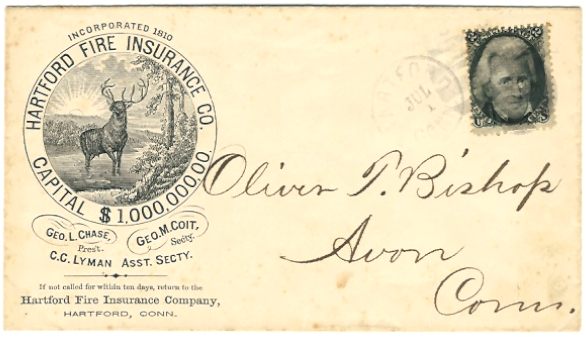 INCORPORATED 1810
HARTFORD FIRE INSURANCE CO.
CAPITAL $1,000,000,00.
GEO. L. CHASE,
Prest.
GEO. M. COIT,
Secty.
C.C. LYMAN ASST. SECTY.
If not called for within ten days, return to the
Hartford Fire Insurance Company,
HARTFORD, CONN.
HARTFORD
JUL
1
Oliver T. Bishop
Avon
Conn.